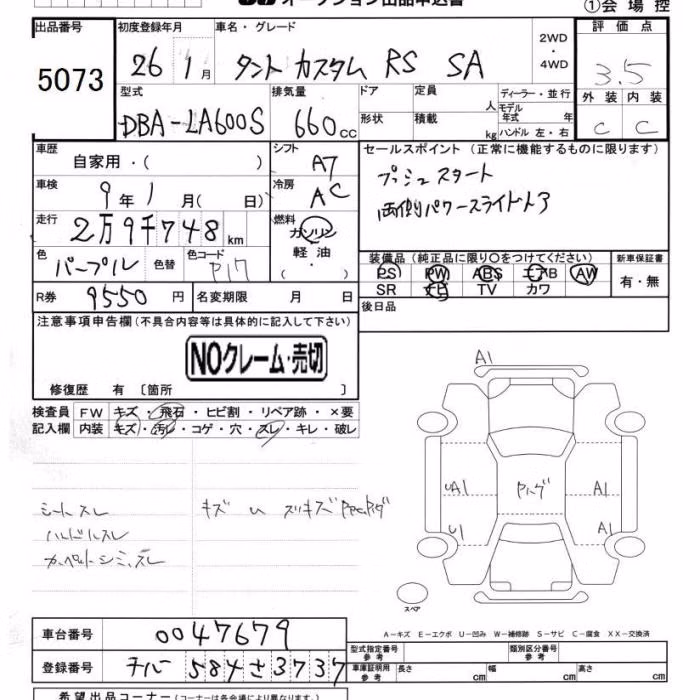 オークション出品申込書
①会場控
出品番号 初度登録年月 車名・グレード 2WD・4WD 評価点
5073 26 1月 タント カスタム RS SA 3.5
型式 排気量 ドア 定員 人 ディーラー・並行 外装 内装
DBA-LA600S 660cc 形状 積載 kg モデル年式 年 ハンドル 左・右 C C
車歴 自家用・( ) シフト A7 セールスポイント(正常に機能するものに限ります)
車検 9年1月( 日) 冷房 AC プッシュスタート
両側パワースライドドア
走行 2万9千748km 燃料 ガソリン
軽油
・( )
色 パープル 色替 色コード P17 装備品(純正品に限り〇をつけてください) 新車保証書
PS PW ABS エアB AW 有・無
SR ナビ TV カワ
R券 9550円 名変期限 月 日 後日品
注意事項申告欄(不具合内容等は具体的に記入して下さい)
NOクレーム・売切
修復歴 有 〔箇所 〕
検査員 FW キズ・飛石・ヒビ割・リペア跡・×要
記入欄 内装 キズ・汚レ・コゲ・穴・スレ・キレ・破レ
A1
UA1 A1
U1 A1
シートスレ キズ U スリキズ
ハンドルスレ
カーペットシミ、スレ
スペア
A-キズ E-エクボ U-凹み W-補修跡 S-サビ C-腐食 XX-交換済
車台番号 0047679
型式指定番号 参考 類別区分番号 参考
登録番号 584さ3737
車庫証明用 参考 長さ cm 幅 cm 高さ cm
希望出品コーナー(コーナーは各会場により異なります。)